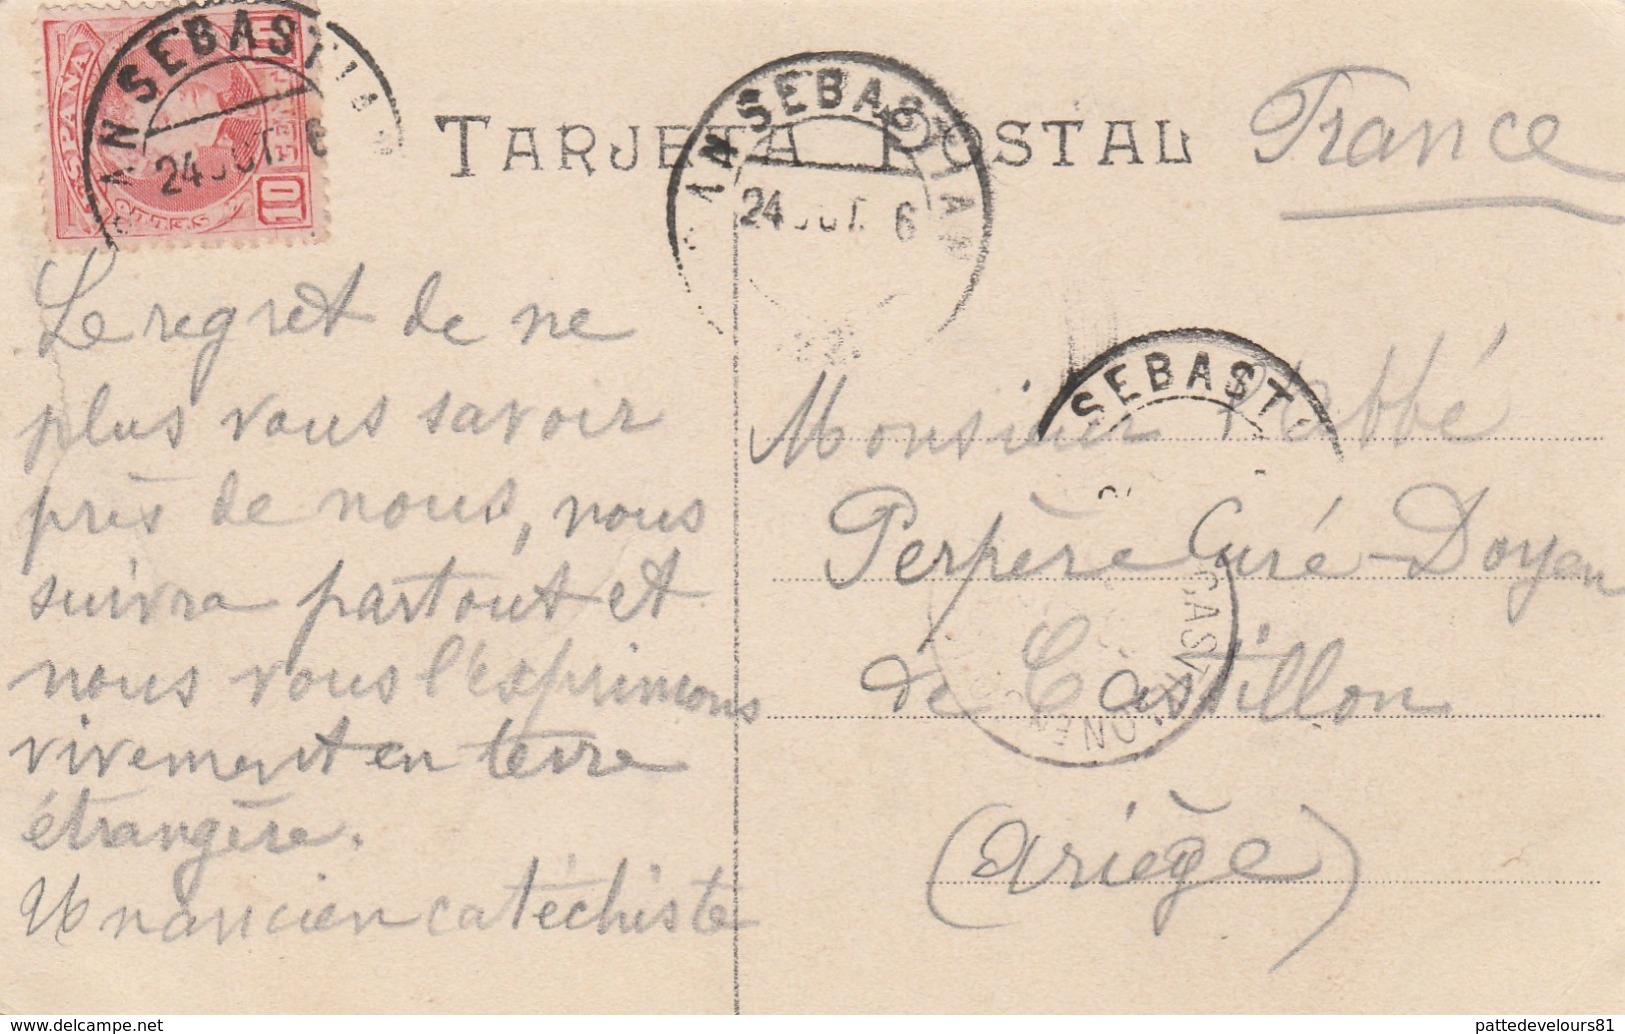 ESPAÑA
10
SAN SEBASTIAN
24 OCT. 6
TARJETA POSTAL
SAN SEBASTIAN
24 OCT. 6
France
Le regret de ne
plus vous savoir
près de nous, nous
suivra partout et
nous vous l'exprimons
vivement en terre
étrangère.
Un ancien catéchiste
SEBAST
Monsieur l'abbé
Perpère Curé-Doyen
de Castillon
(Ariège)
www.delcampe.net
pattedevelours81